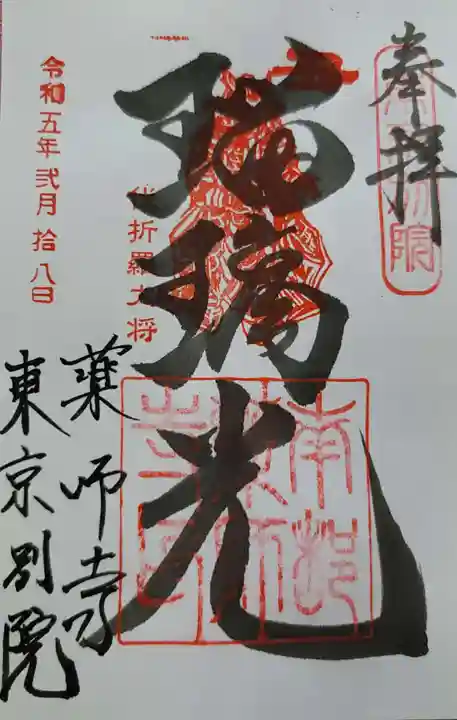 奉拝
瑠璃光
伐折羅大将
令和五年弐月拾八日
薬師寺
東京別院